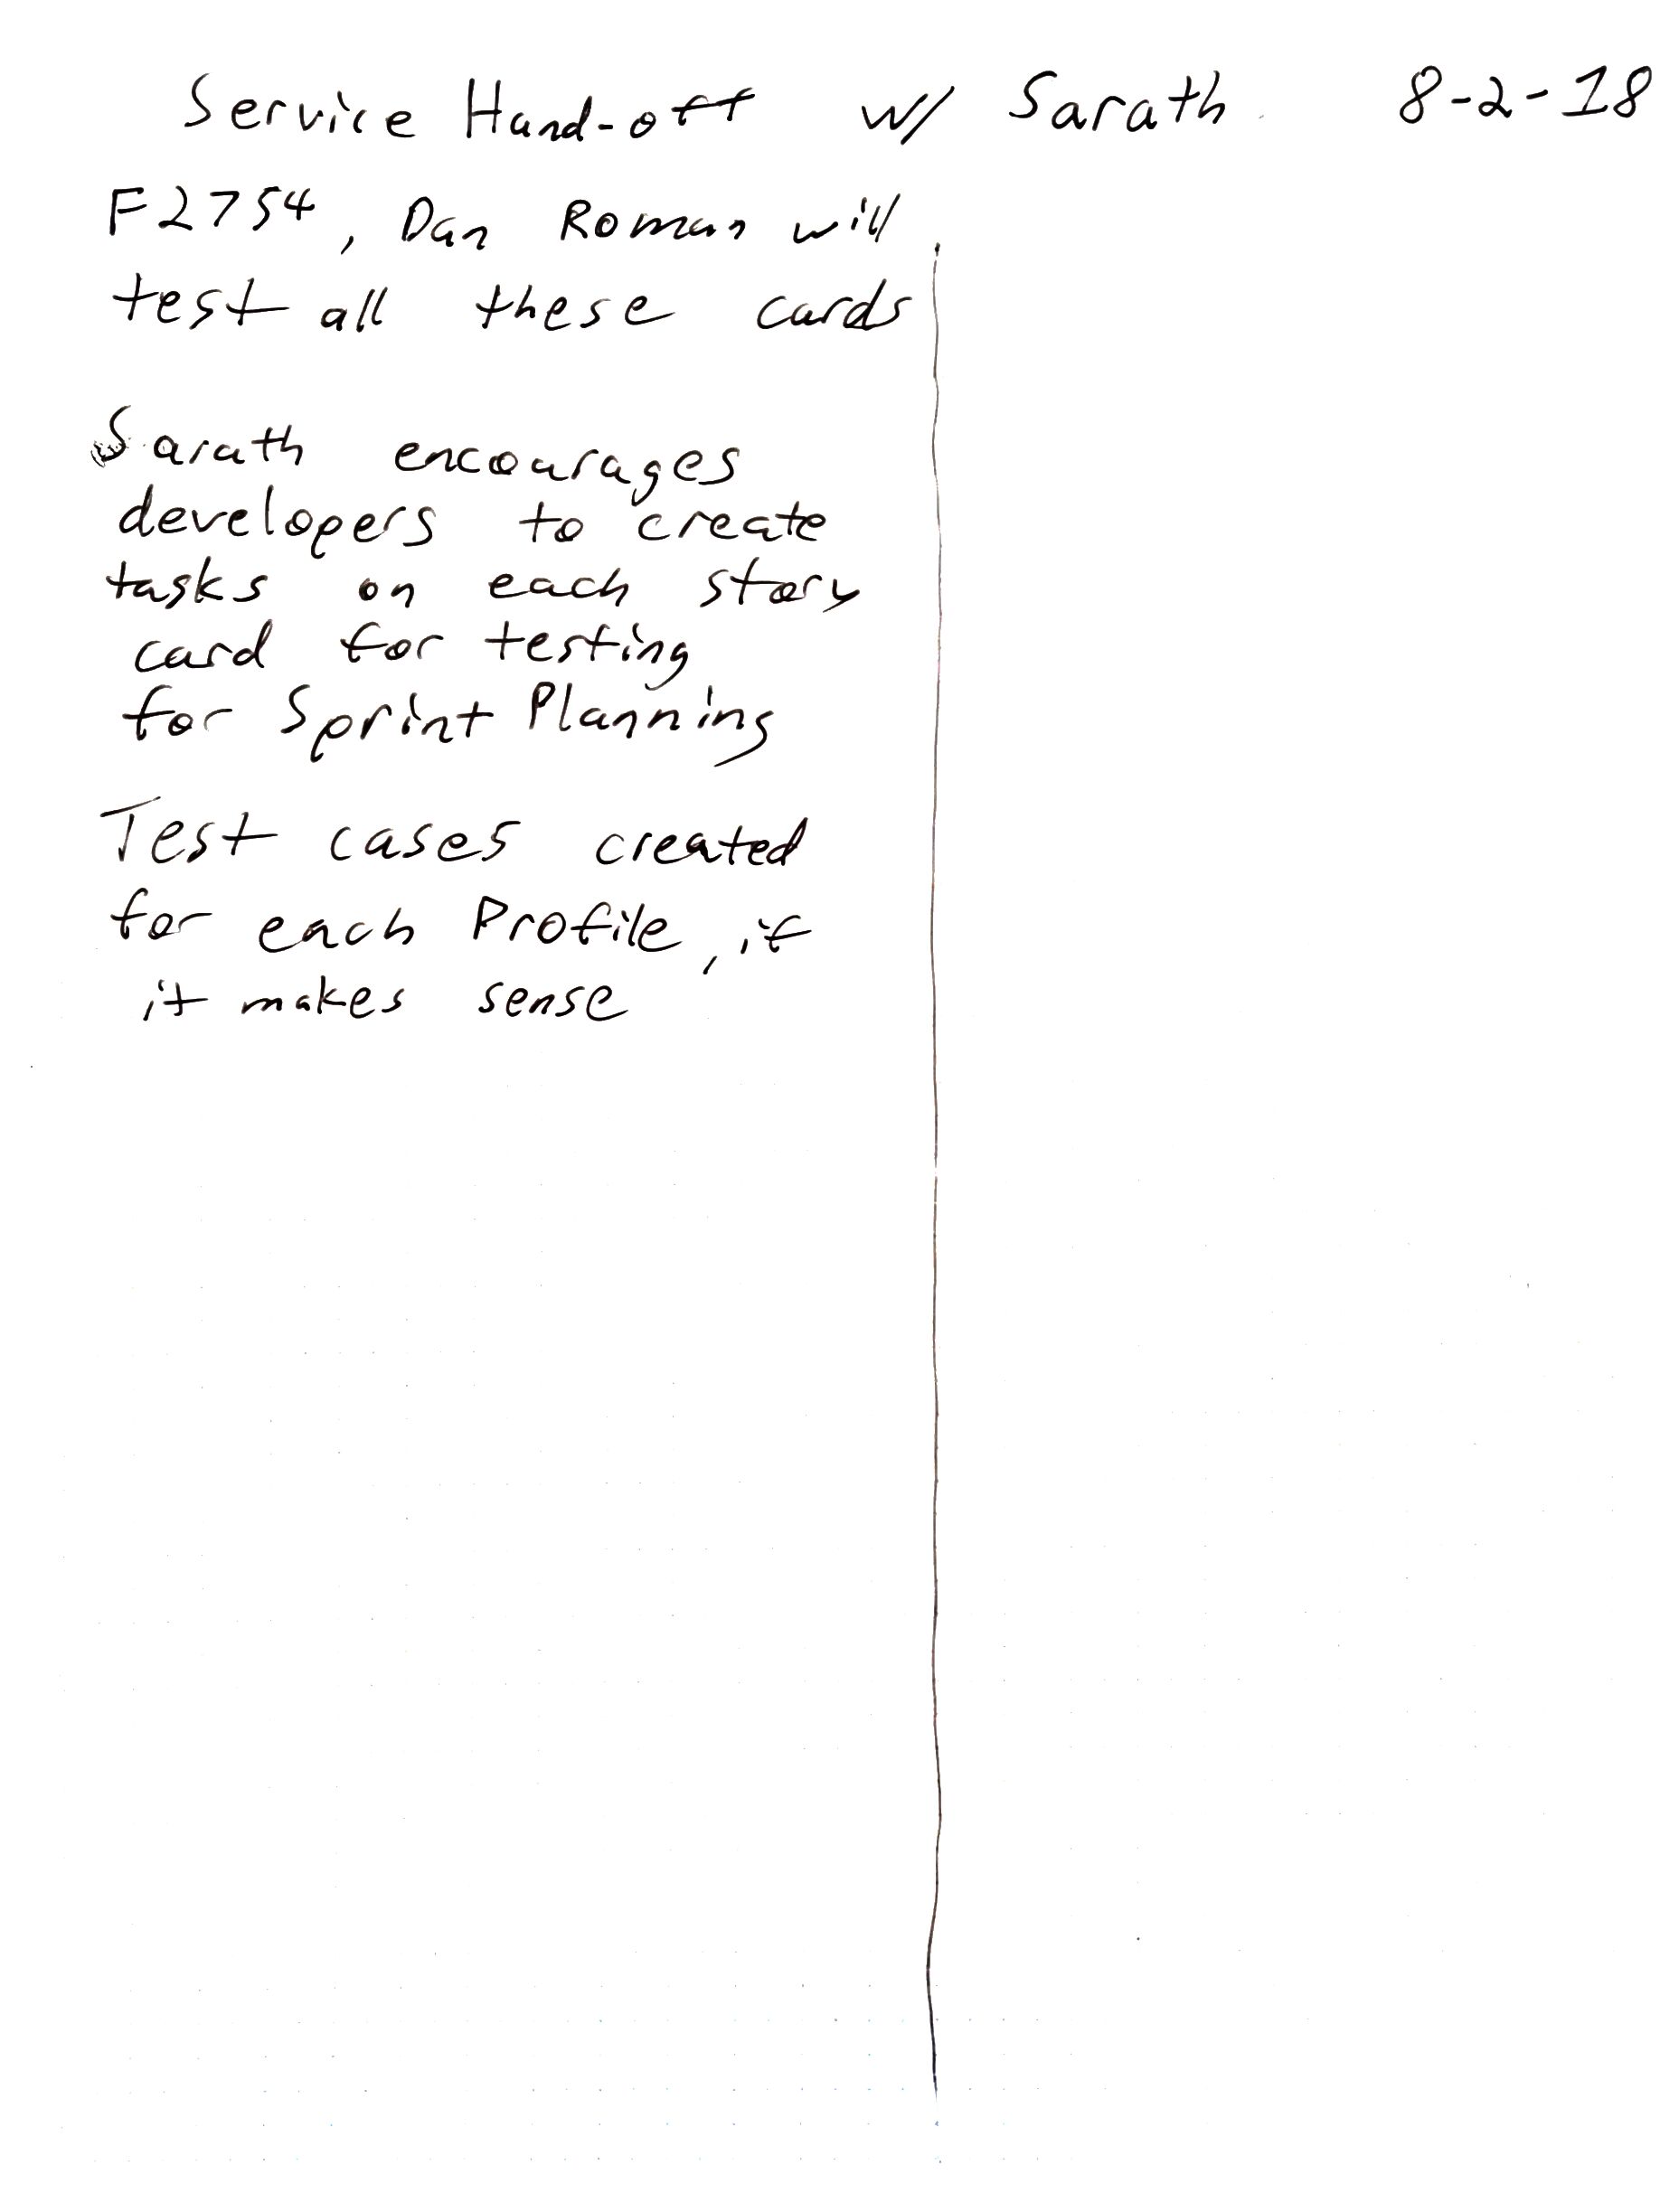 Service Hand-off w/ Sarath 8-2-18
F2754, Dan Roman will
test all these cards
Sarath encourages
developers to create
tasks on each story
card for testing
for Sprint Planning
Test cases created
for each Profile, if
it makes sense